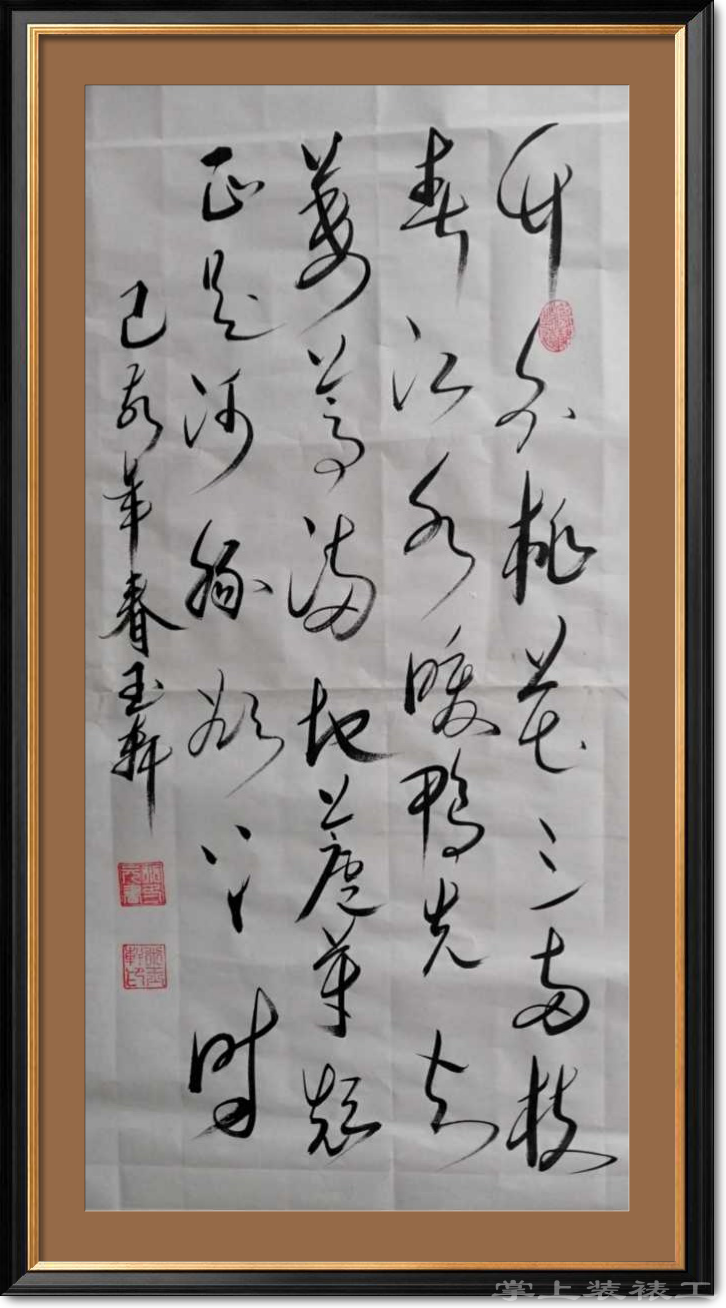 竹外桃花三两枝
春江水暖鸭先知
蒌蒿满地芦芽短
正是河豚欲上时
己亥年春玉轩
掌上装裱工